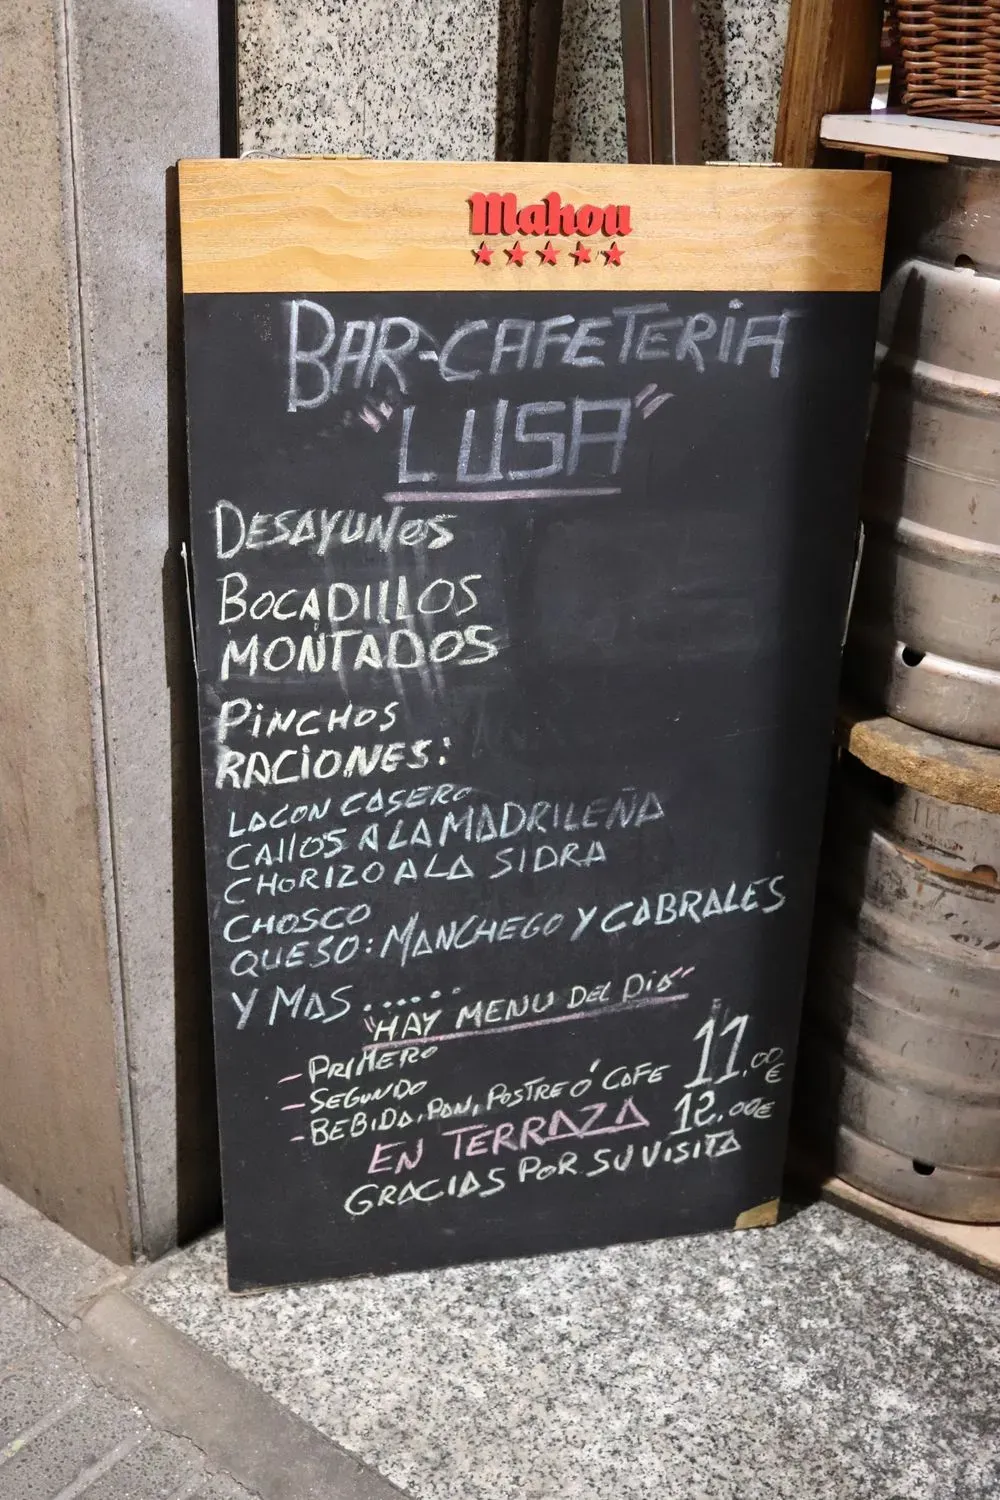 Mahou
BAR-CAFETERIA
"LUSA"
DESAYUNOS
BOCADILLOS
MONTADOS
PINCHOS
RACIONES:
LACON CASERO
CALLOS A LA MADRILEÑA
CHORIZO A LA SIDRA
CHOSCO
QUESO: MANCHEGO Y CABRALES
Y MAS ......
"HAY MENU DEL DIA"
- PRIMERO
- SEGUNDO
- BEBIDA, PAN, POSTRE Ó CAFE 11,00 €
EN TERRAZA 12,00€
GRACIAS POR SU VISITA